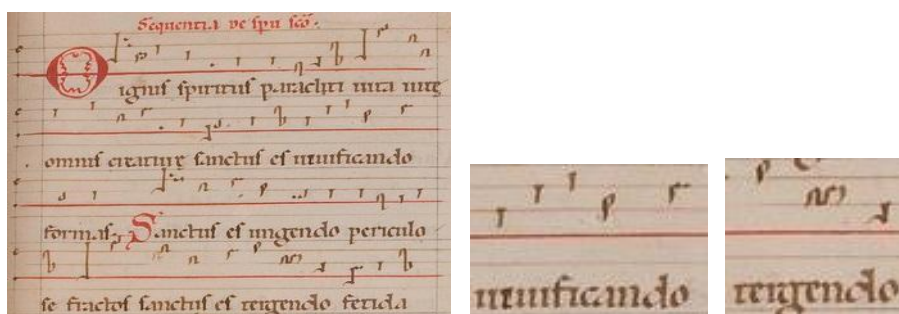 Sequentia de spu sco.
O ignis spiritus paracliti uita uite
omnis creature sanctus es uiuificando
formas. Sanctus es ungendo periculo
se fractos sanctus es tergendo fetida
uiuificando
tergendo